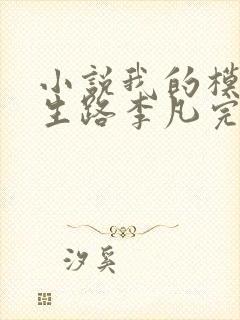 小説我的模
生路李凡完
汐奚